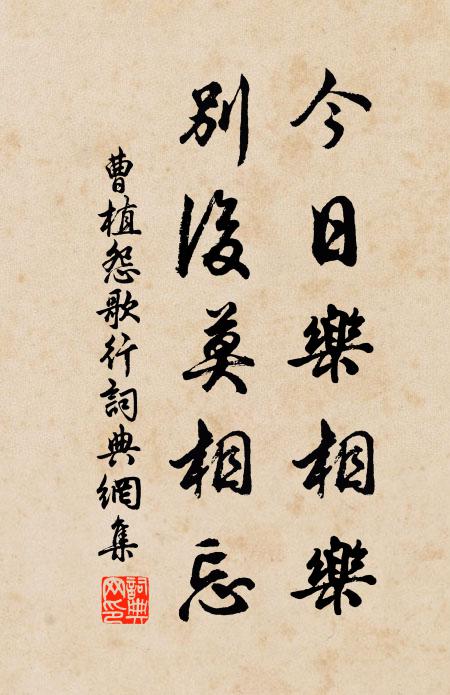 今日樂相樂
別後莫相忘
曹植怨歌行詞典網集
詞典網印